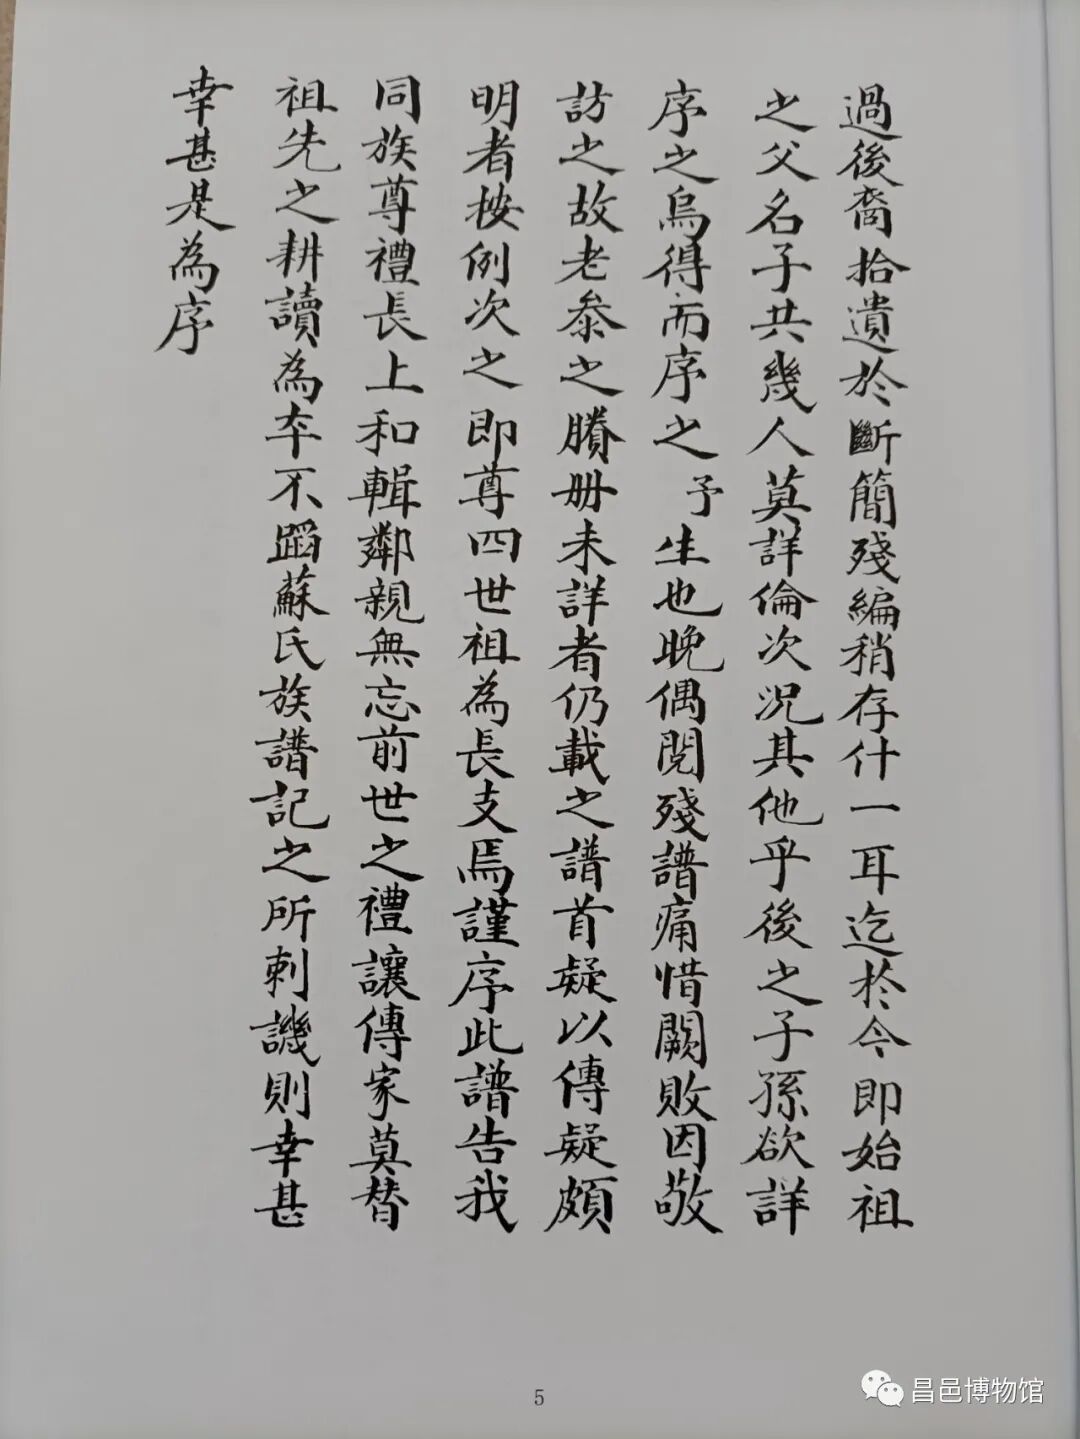 過後裔拾遺於斷簡殘編稍存什一耳迄於今即始祖
之父名子共幾人莫詳倫次況其他乎後之子孫欲詳
序之烏得而序之予生也晚偶閱殘譜痛惜闕敗因敬
訪之故老叅之賸册未詳者仍載之譜首疑以傳疑頗
明者按例次之即尊四世祖為長支焉謹序此譜告我
同族尊禮長上和輯鄰親無忘前世之禮讓傳家莫替
祖先之耕讀為夲不蹈蘇氏族譜記之所刺譏則幸甚
幸甚是為序
5
昌邑博物馆